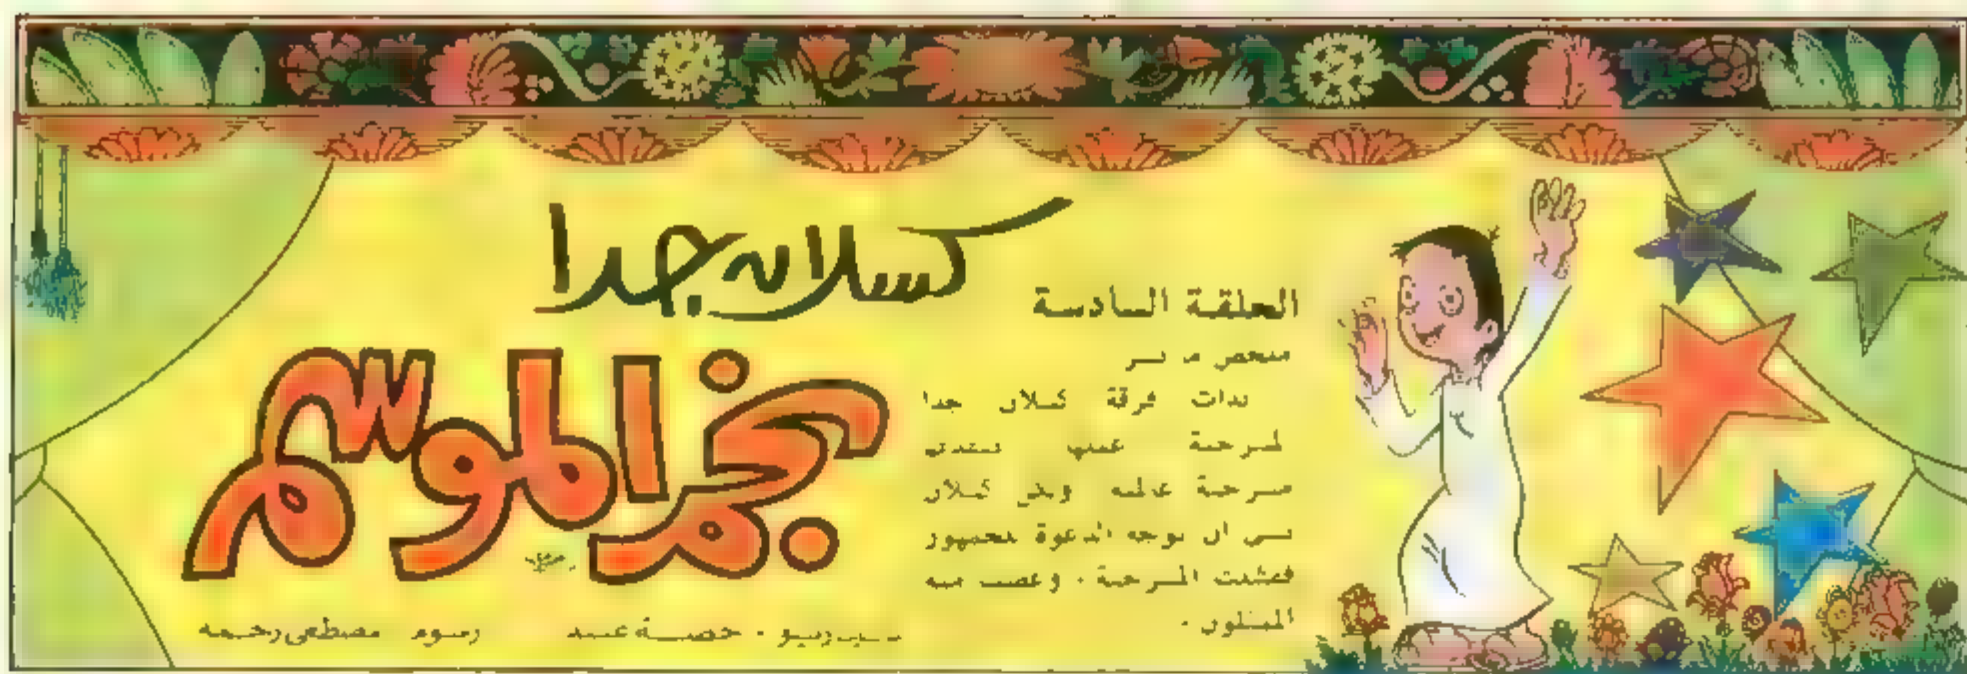 كسلان جدا
نجم الموسم
الحلقة السادسة
ملخص ما نشر
بدأت فرقة كسلان جدا
لمسرحة
مسرحية ولكن كسلان
نسى ان يوجه الدعوة للجمهور
ففشلت المسرحية . وغضب منه
الممثلون .
سيناريو . حصة رسوم مصطفى رحمه